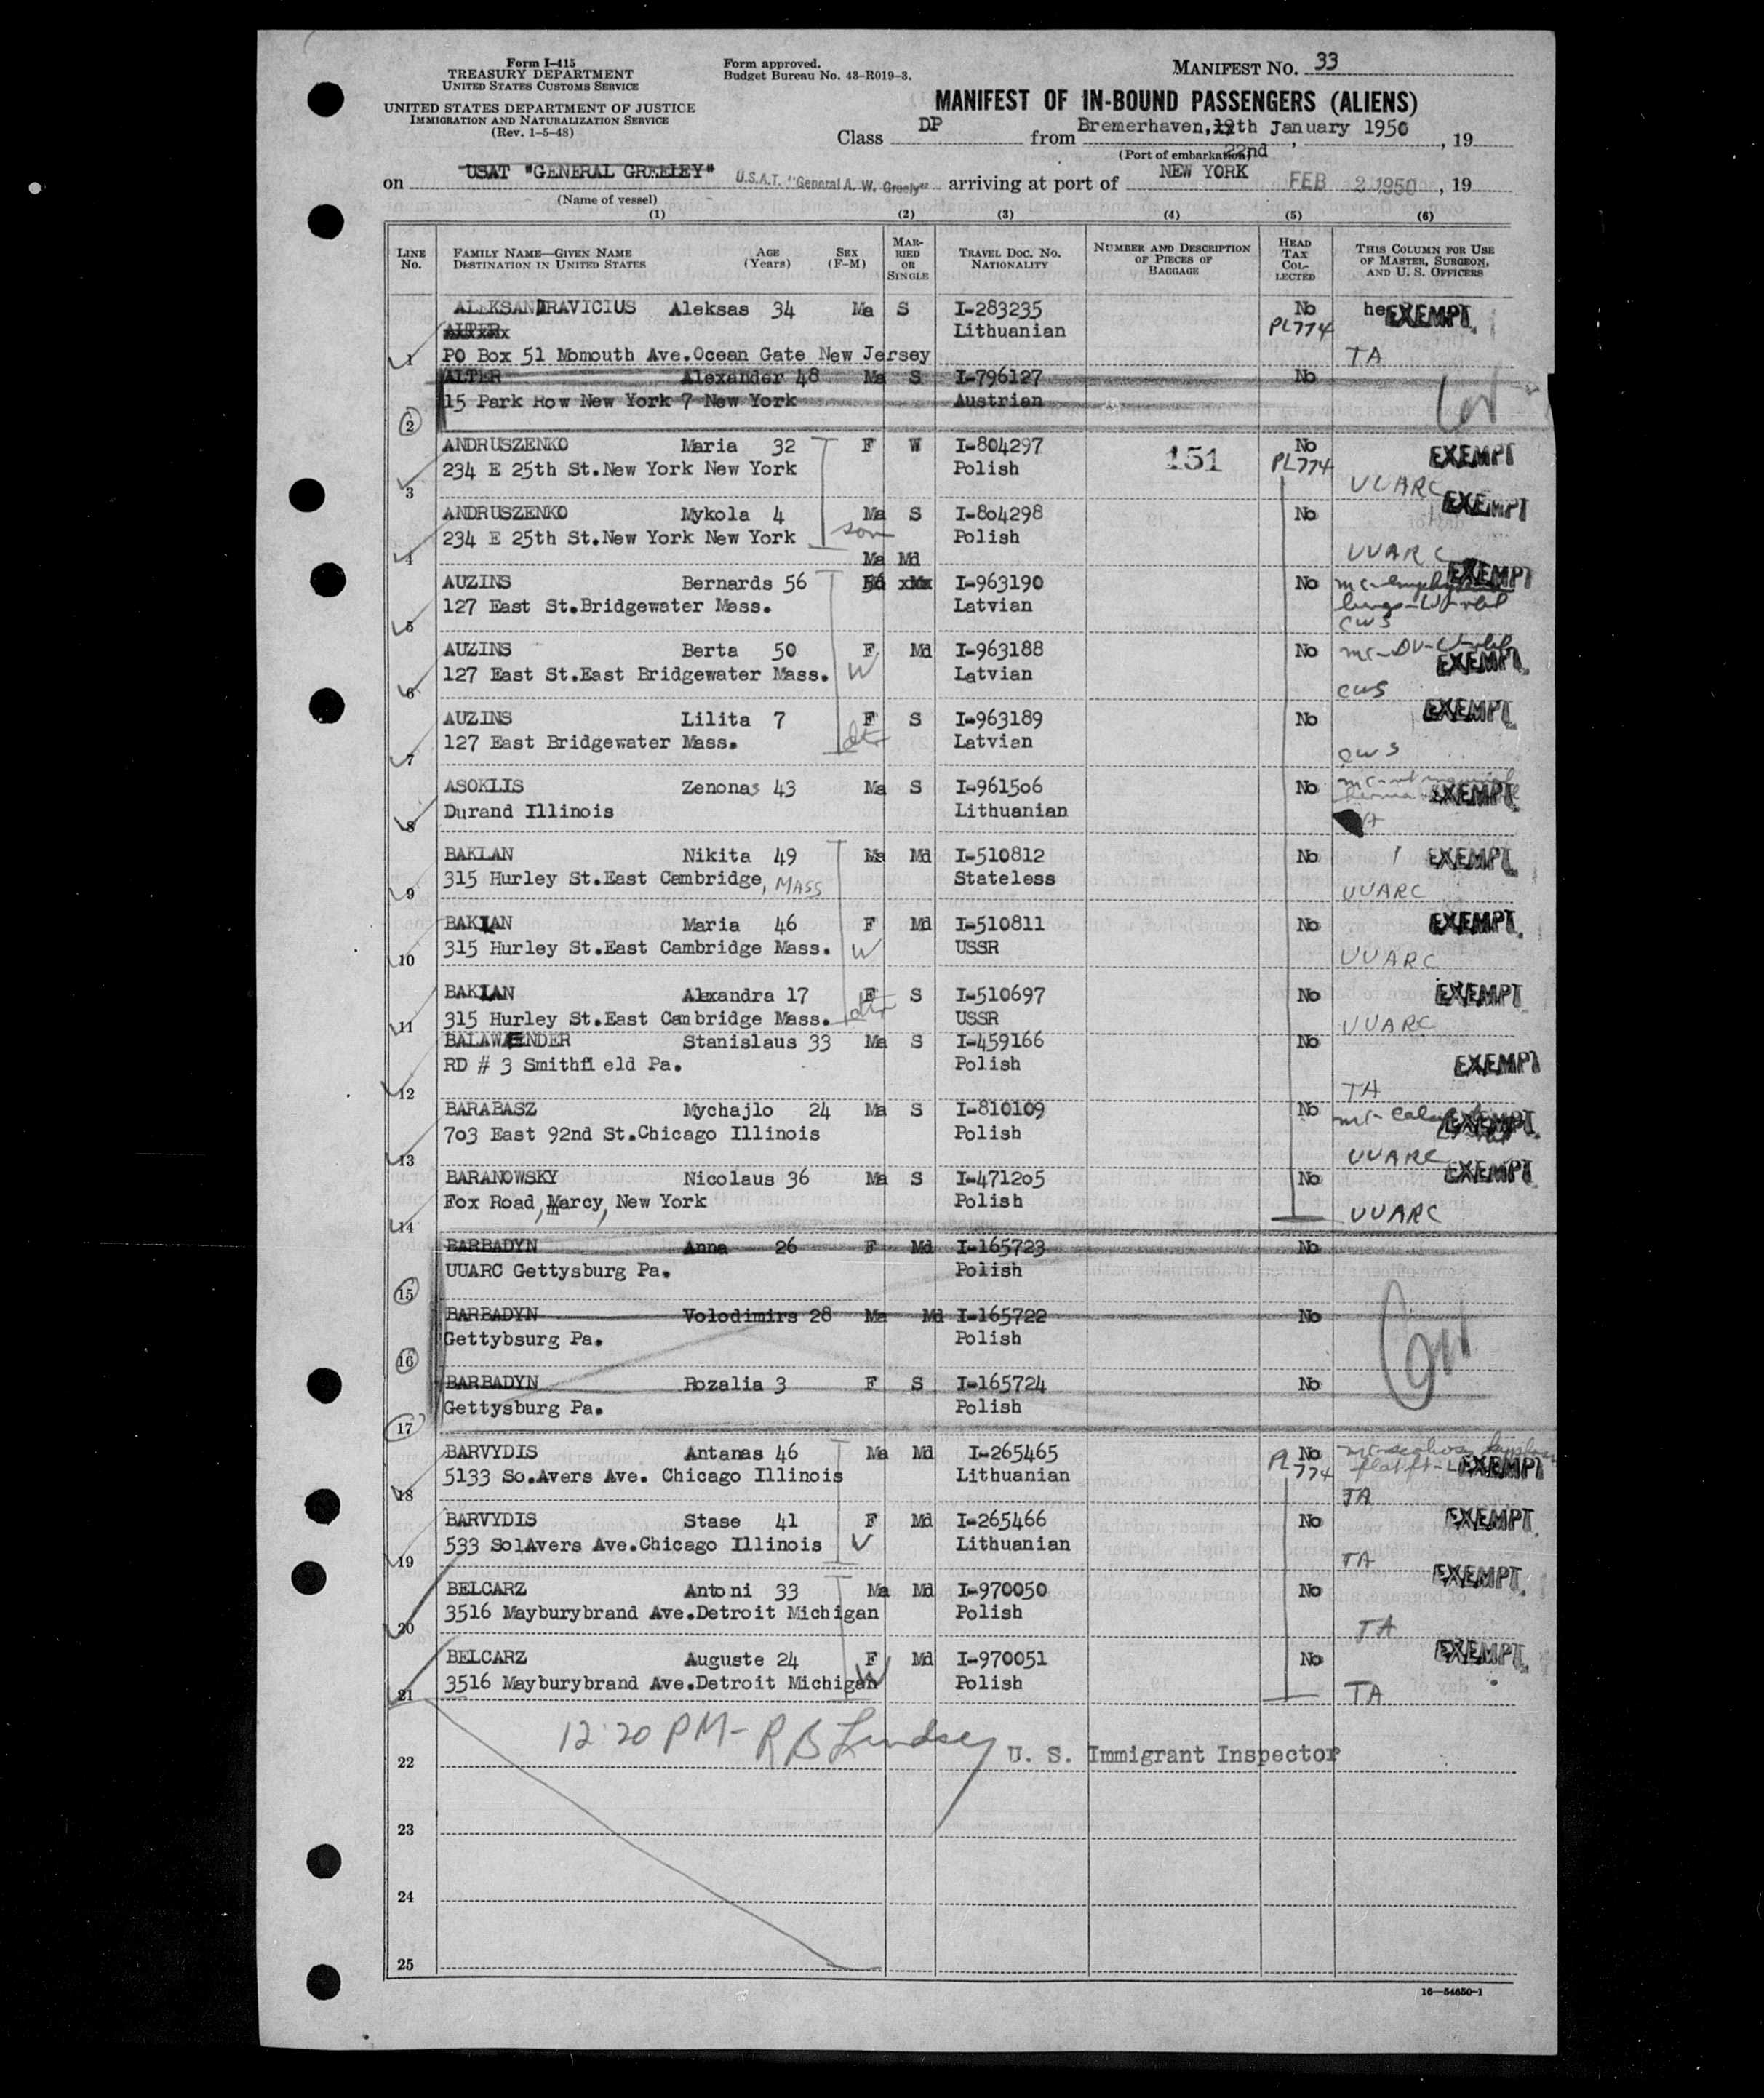 Form I-415
TREASURY DEPARTMENT
UNITED STATES CUSTOMS SERVICE
UNITED STATES DEPARTMENT OF JUSTICE
IMMIGRATION AND NATURALIZATION SERVICE
(Rev. 1-5-48)
Form approved.
Budget Bureau No. 43-R019-3.
MANIFEST NO. 33
MANIFEST OF IN-BOUND PASSENGERS (ALIENS)
Class DP from Bremerhaven, 19th January 1950, 19
(Port of embarkation) 22nd
on USAT "GENERAL GREELEY" U.S.A.T. "General A. W. Greely" arriving at port of NEW YORK FEB 2 1950, 19
(Name of vessel)
(1) (2) (3) (4) (5) (6)
LINE No. FAMILY NAME—GIVEN NAME DESTINATION IN UNITED STATES AGE (Years) SEX (F-M) MARRIED OR SINGLE TRAVEL DOC. NO. NATIONALITY NUMBER AND DESCRIPTION OF PIECES OF BAGGAGE HEAD TAX COLLECTED THIS COLUMN FOR USE OF MASTER, SURGEON, AND U. S. OFFICERS
ALEKSANDRAVICIUS Aleksas 34 Ma S I-283235 No EXEMPT
ALTER Lithuanian PL774
1 PO Box 51 Momouth Ave.Ocean Gate New Jersey TA
ALTER Alexander 48 Ma S I-796127 No
15 Park Row New York 7 New York Austrian
2
ANDRUSZENKO Maria 32 F W I-804297 151 No EXEMPT
234 E 25th St.New York New York Polish PL774
3 UUARC
ANDRUSZENKO Mykola 4 Ma S I-804298 No EXEMPT
234 E 25th St.New York New York son Polish
4 UUARC
Ma Md
AUZINS Bernards 56 I-963190 No EXEMPT
127 East St.Bridgewater Mass. Latvian
5 CWS
AUZINS Berta 50 F Md I-963188 No
127 East St.East Bridgewater Mass. W Latvian EXEMPT
6 CWS
AUZINS Lilita 7 F S I-963189 No EXEMPT
127 East Bridgewater Mass. dtr Latvian
7 CWS
ASOKLIS Zenonas 43 Ma S I-961506 No EXEMPT
Durand Illinois Lithuanian
8
BAKLAN Nikita 49 Ma Md I-510812 No EXEMPT
315 Hurley St.East Cambridge, MASS Stateless
9 UUARC
BAKLAN Maria 46 F Md I-510811 No EXEMPT
315 Hurley St.East Cambridge Mass. W USSR
10 UUARC
BAKLAN Alexandra 17 F S I-510697 No EXEMPT
11 315 Hurley St.East Cambridge Mass. dtr USSR UUARC
BALAWAENDER Stanislaus 33 Ma S I-459166 No
RD # 3 Smithfi eld Pa. Polish EXEMPT
12 TA
BARABASZ Mychajlo 24 Ma S I-810109 No EXEMPT
703 East 92nd St.Chicago Illinois Polish
13 UUARC
BARANOWSKY Nicolaus 36 Ma S I-471205 No EXEMPT
Fox Road, Marcy, New York Polish
14 UUARC
BARBADYN Anna 26 F Md I-165723 No
UUARC Gettysburg Pa. Polish
15
BARBADYN Volodimirs 28 Ma Md I-165722 No
Gettybsurg Pa. Polish
16
BARBADYN Rozalia 3 F S I-165724 No
Gettysburg Pa. Polish
17
BARVYDIS Antanas 46 Ma Md I-265465 No
5133 So.Avers Ave. Chicago Illinois Lithuanian PL 774 EXEMPT
18 TA
BARVYDIS Stase 41 F Md I-265466 No EXEMPT
533 SolAvers Ave.Chicago Illinois Lithuanian
19 TA
BELCARZ Antoni 33 Ma Md I-970050 No EXEMPT
3516 Mayburybrand Ave.Detroit Michigan Polish
20 TA
BELCARZ Auguste 24 F Md I-970051 No EXEMPT
3516 Mayburybrand Ave.Detroit Michigan W Polish
21 TA
12:20 PM- R B Lindsey U. S. Immigrant Inspector
22
23
24
25
16—54650-1